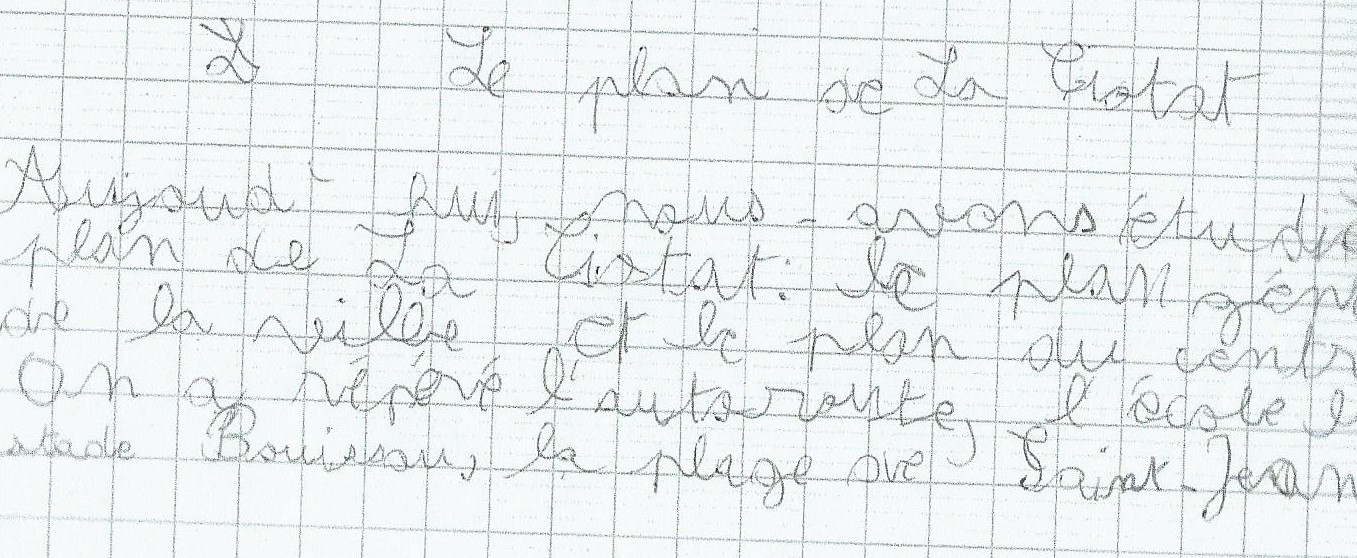 2 Le plan de La Ciotat
Aujoud'hui, nous-avons étudié
plan de La Ciotat: le plan géné
de la veille et le plan du centr
On a répéré l'autoroute, l'école l
stade Bouissou, la plage de Saint-Jean